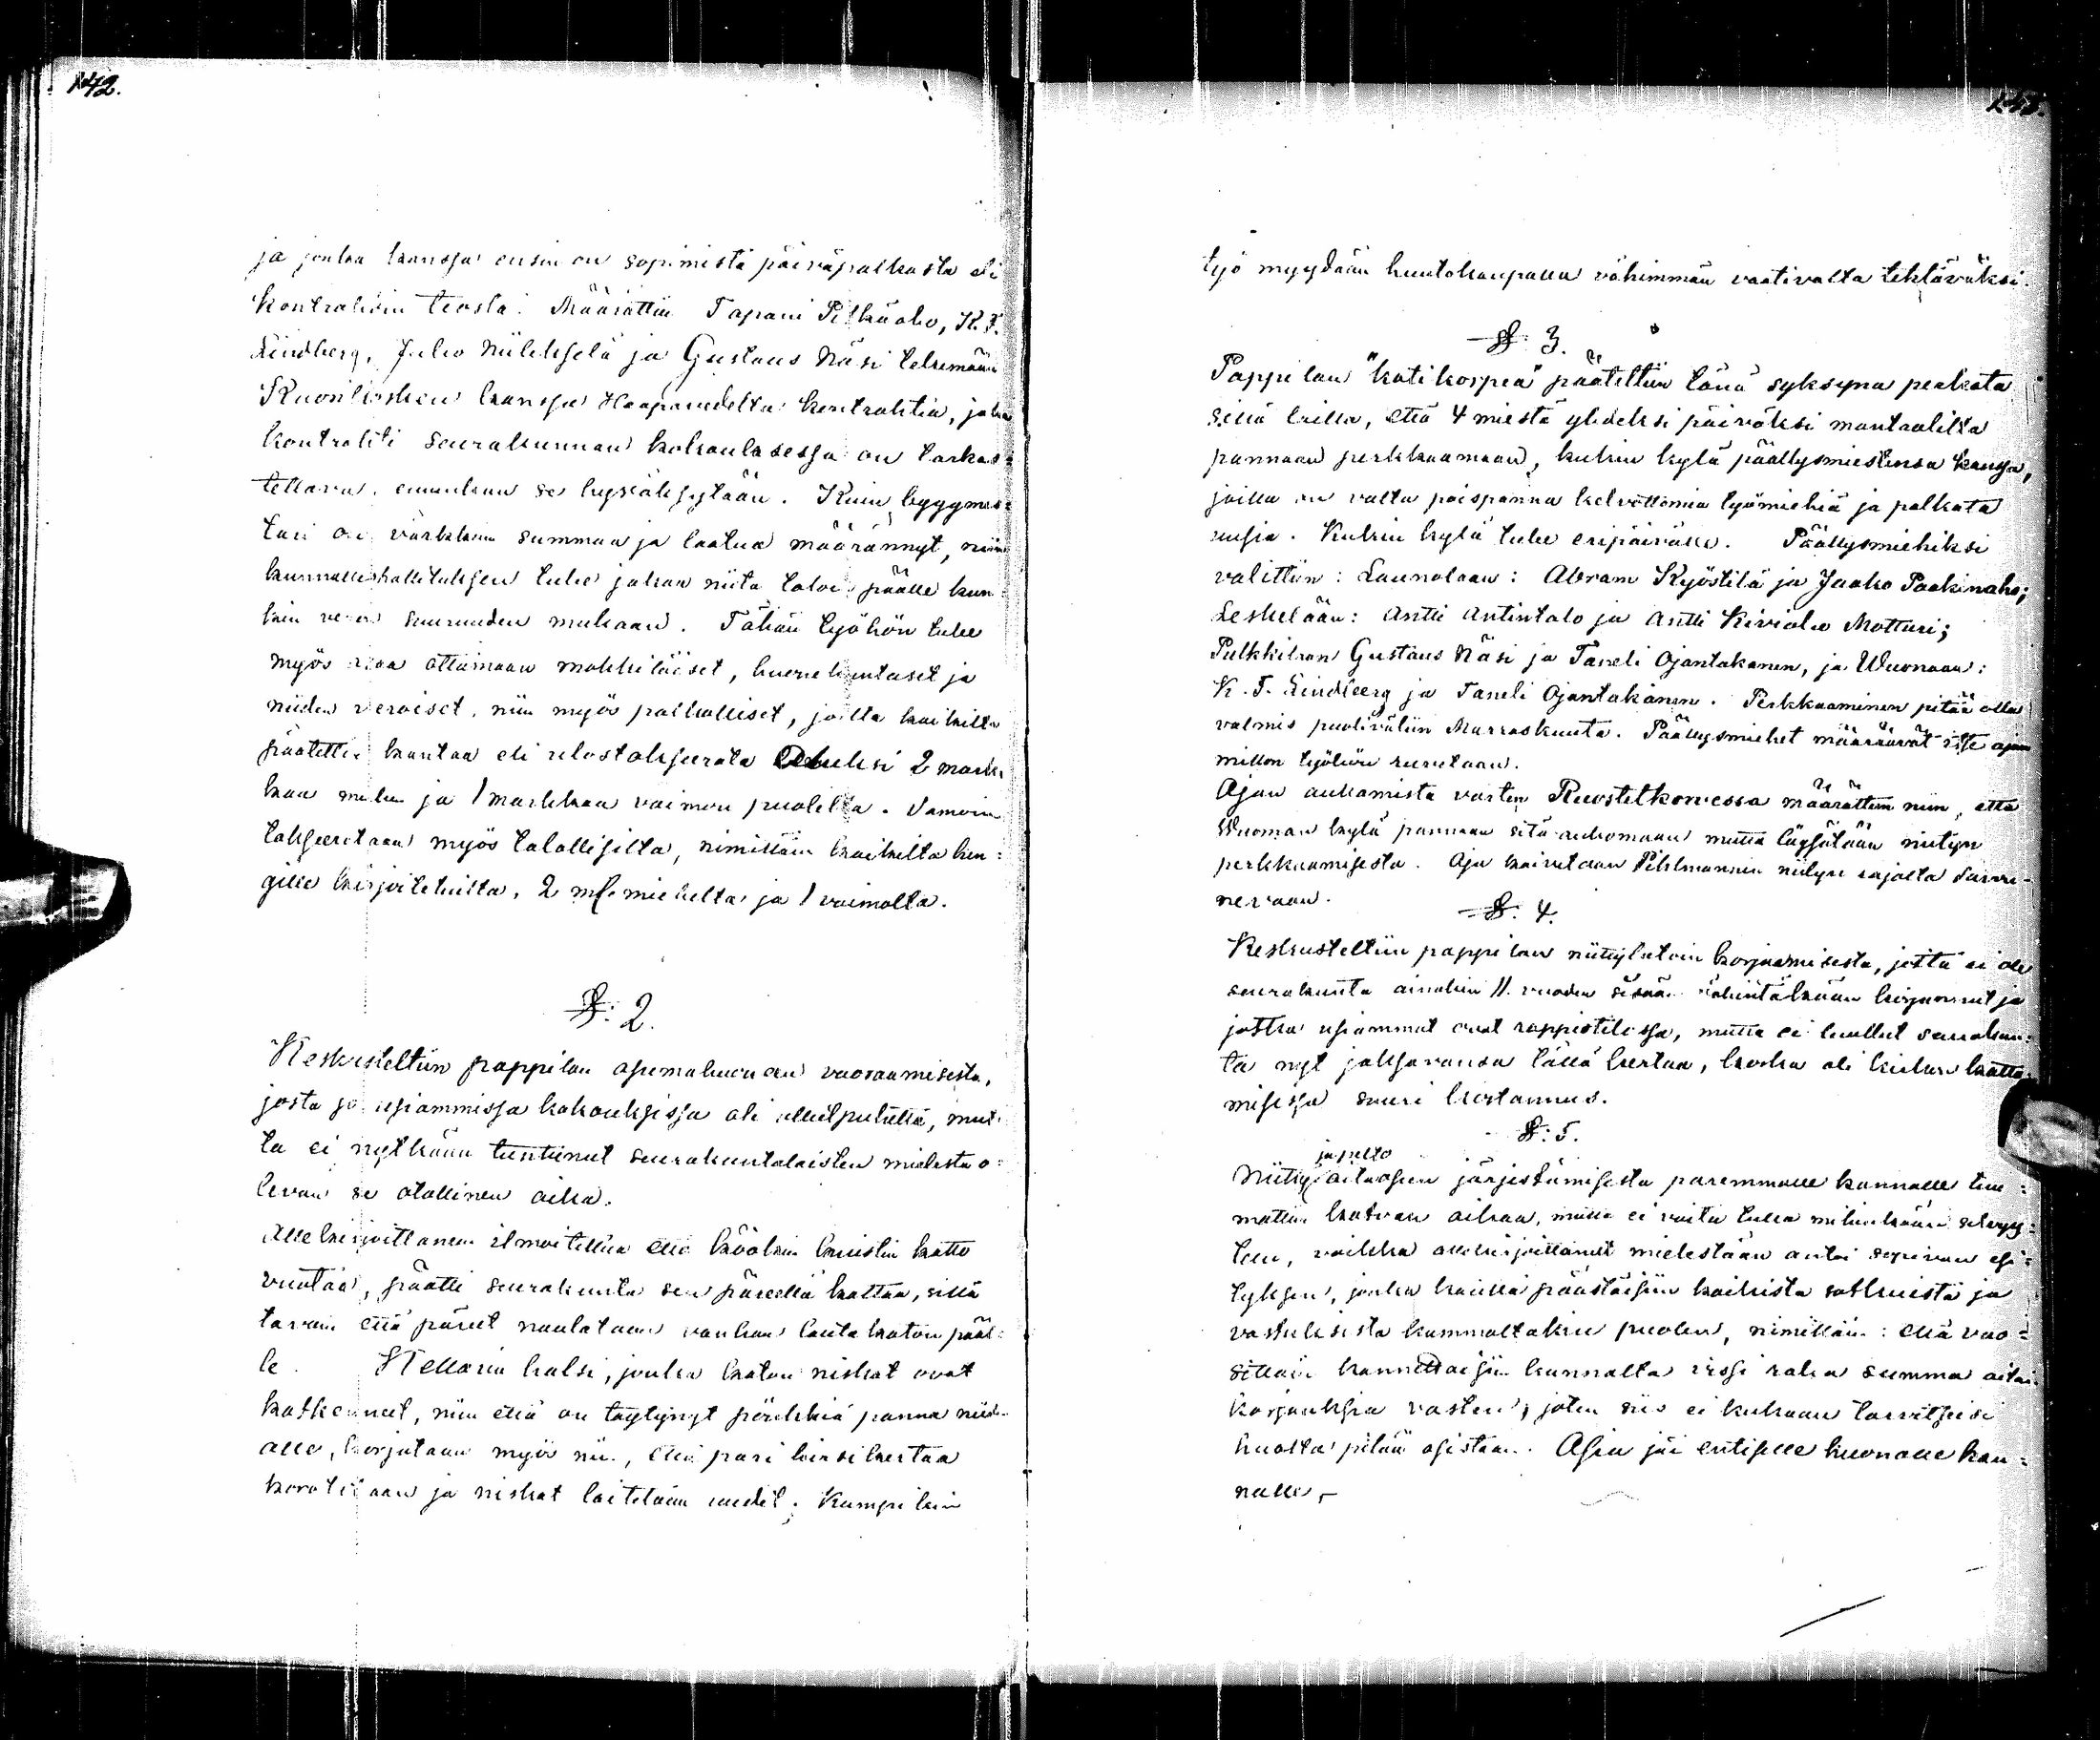 142.
ja jonka kanssa ensin on sopimista päiväpalkasta eli
kontrahtin teosta. Määrättiin Tapani Pitkäaho, K. F.
Lindberg, Juho Niilekselä ja Gustaus Näsi tekemään
Kuonlinsken kanssa Haapavedeltä kontrahtia, joka
kontrahti seurakunnan kokouksessa on tarkas=
tettava, ennenkuin se hyväksytään. Kuin byggmes=
tari on värkkein summaa ja laatua määrännyt, niin
kunnallishallituksen tulee jakaa niitä taloin päälle kun=
kin veron suuruuden mukaan. Tähän työhön tulee
myös osaa ottamaan mökkiläiset, huonekuntaiset ja
niiden veroiset, niin myös palkolliset, joilta kaikilta
päätettiin kantaa eli ulostakseerata avuksi 2 mark=
kaa miehen ja 1 markkaa vaimon puolelta. Samoin
takseerataan myös talollisilta, nimittäin kaikilta hen=
gille kirjoitetuilta, 2 mk mieheltä ja 1 vaimolta.
§: 2.
Keskusteltiin pappilan asumahuoneen vuoraamisesta,
josta jo usiammissa kokouksissa oli ollut puhetta, mut=
ta ei nytkään tuntunut seurakuntalaisten mielestä o=
levan se otollinen aika.
Allekirjoittanen ilmoitettua että köökin kuistin katto
vuotaa, päätti seurakunta sen päreellä kattaa, sillä
tavoin että päreet naulataan vanhan lautakaton pääl=
le. Kellarin halsi, jonka katon niskat ovat
katkenneet, niin että on täytynyt pönkkiä panna niiden
alle, korjataan myös niin, että pari hirsikertaa
korotetaan ja niskat laitetaan uudet. Kumpikin
143.
työ myydään huutokaupalla vähimmän vaativalta tehtäväksi.
§: 3.
Pappilan "katikorpea" päätettiin tänä syksynä perkata
sillä lailla, että 4 miestä yhdeksi päiväksi mantaalilta
pannaan perkkaamaan, kukin kylä päällysmiestensä kanssa,
joilla on valta poispanna kelvottomia työmiehiä ja palkata
uusia. Kukin kylä tulee eripäivälle. Päällysmiehiksi
valittiin: Launolaan: Abram Kyöstilä ja Jaako Paakinaho;
Leskelään: Antti Antintalo ja Antti Kiviaho Motturi;
Pulkkilaan Gustaus Näsi ja Taneli Ojantakanen, ja Wuonaan:
K. F. Lindberg ja Taneli Ojantakanen. Perkkaaminen pitää olla
valmis puoliväliin Marraskuuta. Päällysmiehet määräävät itse ajan
millon työhön ruvetaan.
Ajan aukamista varten Ruostetkorvessa määrättiin niin, että
Wuonan kylä pannaan sitä aukomaan mutta läysätään niityn
perkkaamisesta. Aja kaivetaan Pihlmannin niityn rajalta Saari=
nevaan.
§: 4.
Keskusteltiin pappilan niittylatoin korjaamisesta, joita ei ole
seurakunta ainakin 11. vuoden sisään vähintäkään korjannut ja
jotka usiammat ovat rappiotilassa, mutta ei luullut seurakun=
ta nyt jaksavansa tällä kertaa, koska oli kirkon katta=
misessa suuri kostannus.
§: 5.
ja pelto
Niitty aitausen järjestämisestä paremmalle kannalle tiu=
mattiin kotvan aikaa, mutta ei voitu tulla mihinkään selvyy=
teen, vaikka allekirjoittanut mielestään antoi sopivan esi=
tyksen, jonka kautta päästäisiin kaikista sotkuista ja
vastuksista kummaltakin puolen, nimittäin: että vuo=
sittain kannettaisiin kunnalta vissi raha summa aitain
korjauksia vasten, joten siis ei kukaan tarvitseisi
huolta pitää osistaan. Asia jäi entiselle huonolle kan=
nalle,-